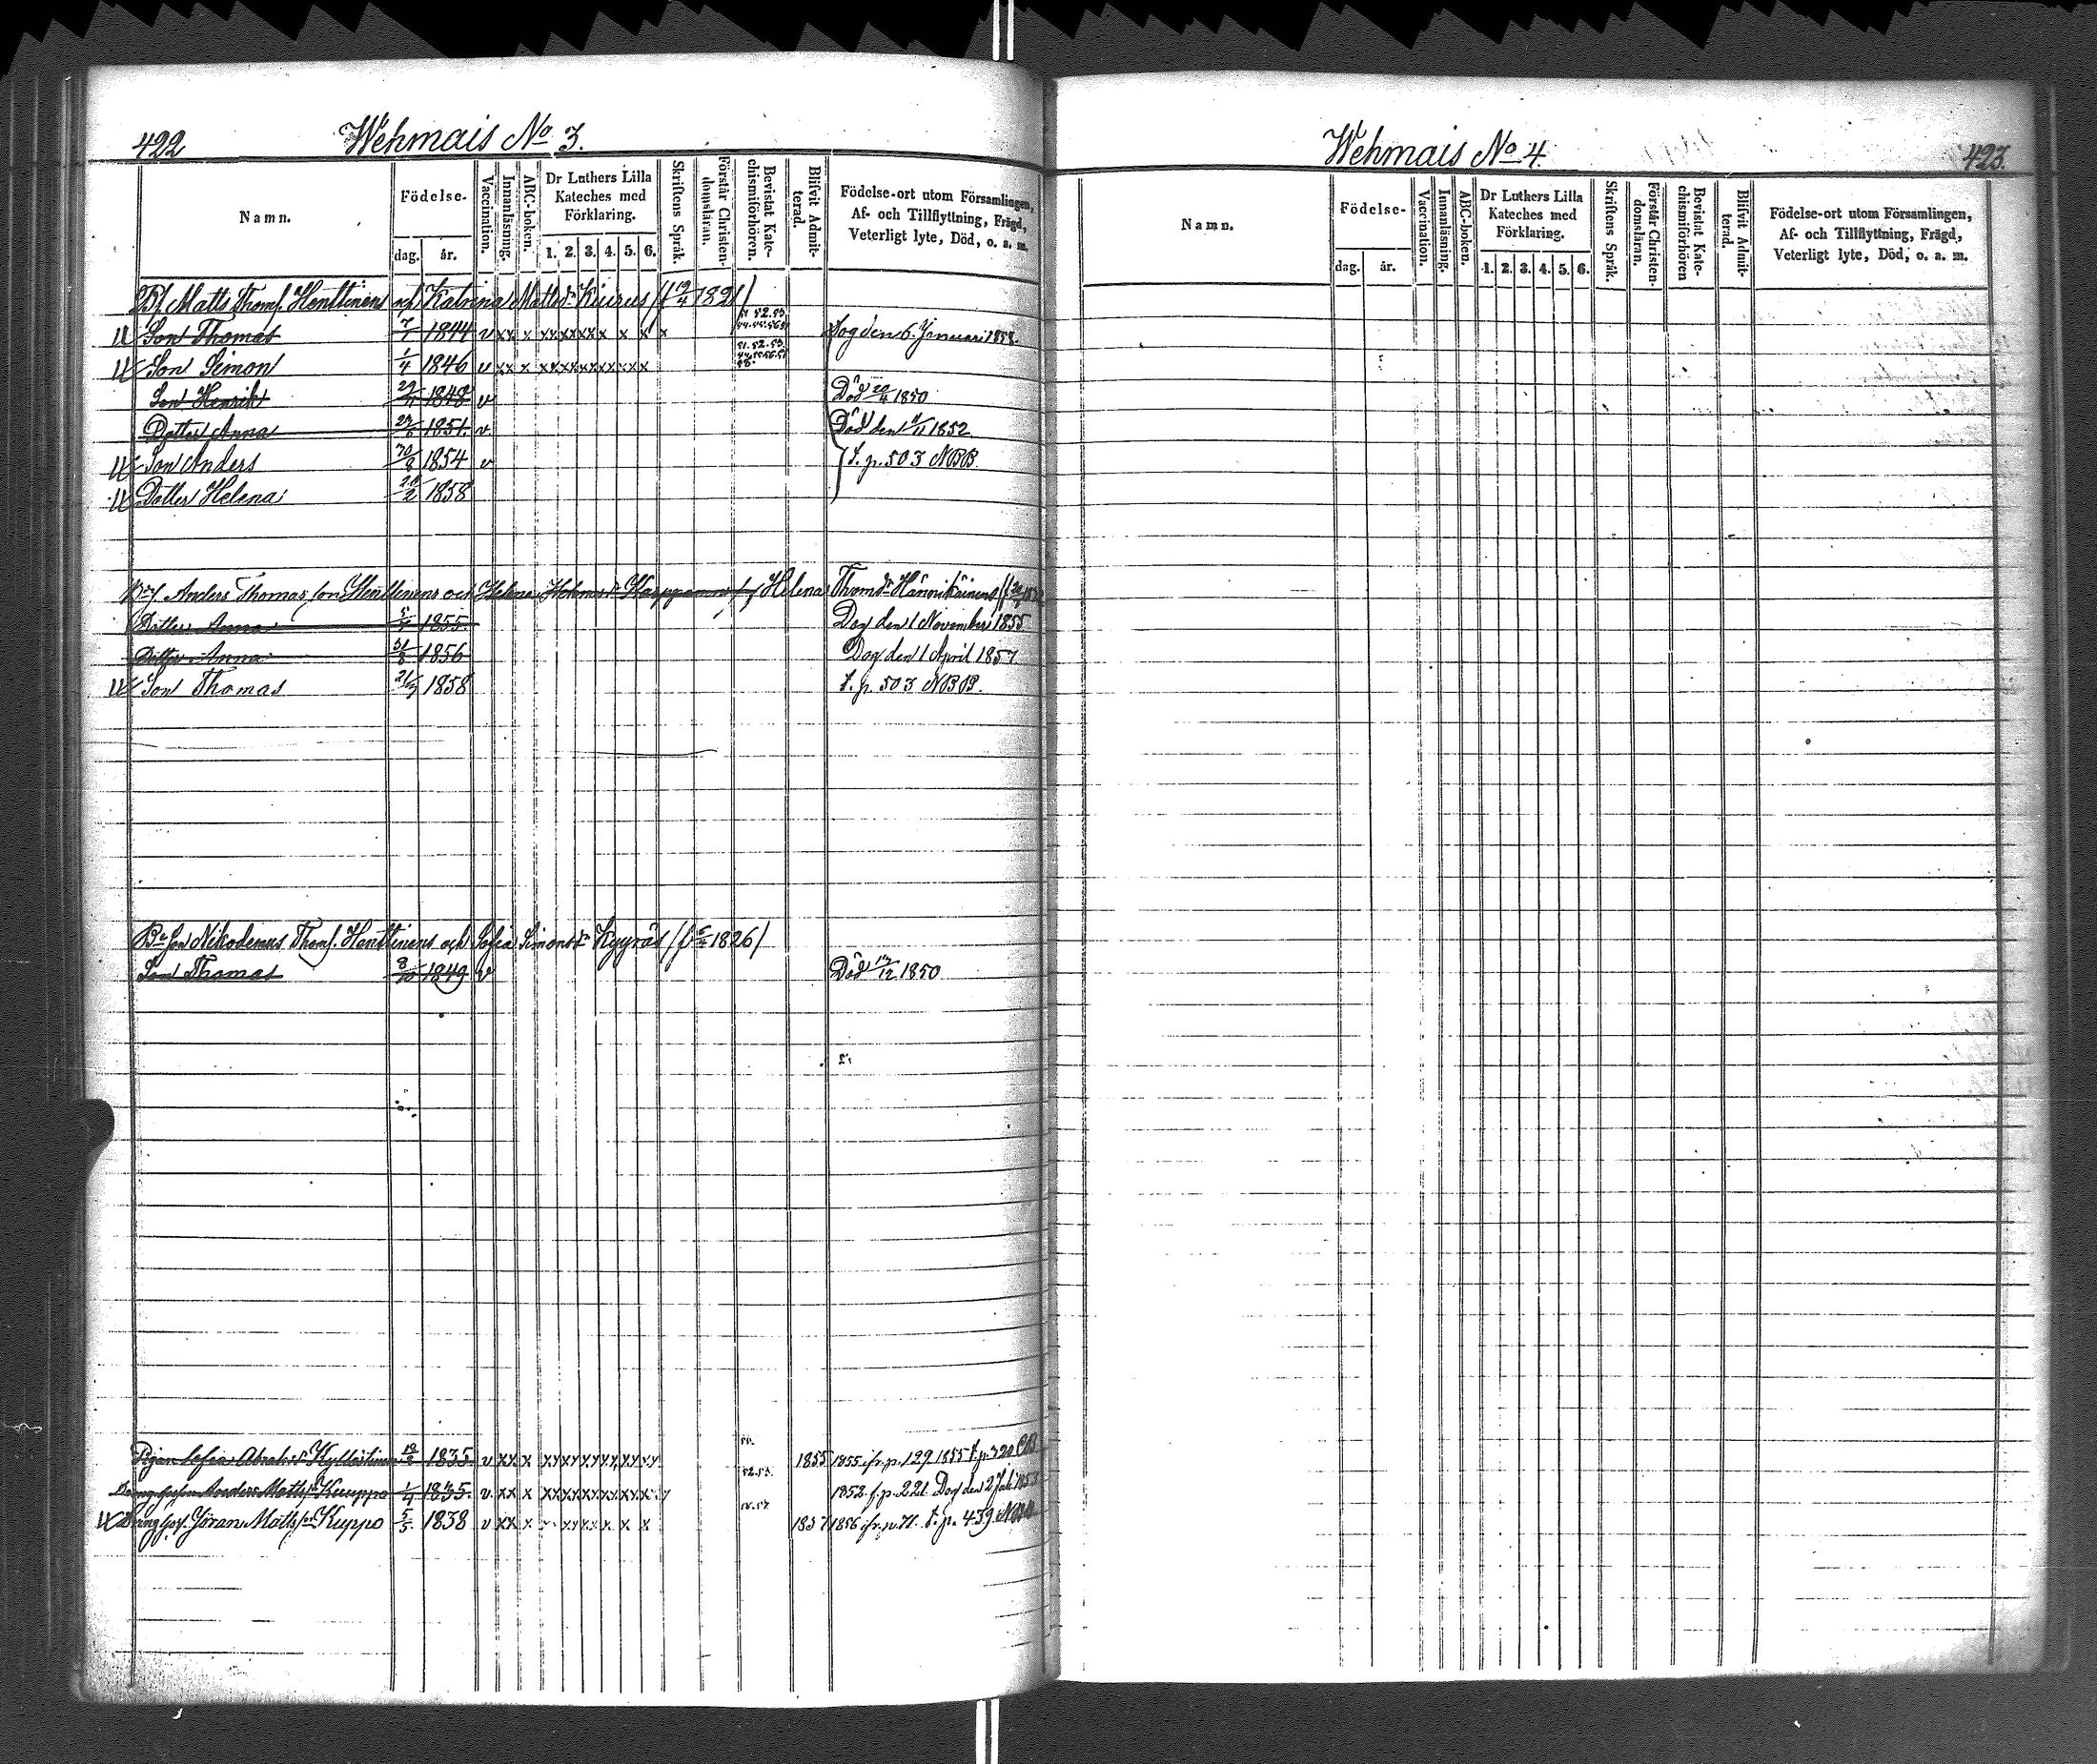 422 Wehmais No 3.
Namn. Födelse- dag. år. Vaccination. Innanläsning. ABC-boken. Dr Luthers Lilla Kateches med Förklaring. 1. 2. 3. 4. 5. 6. Skriftens Språk. Förstår Christendomsläran. Bevistat Katechismiförhören. Blifvit Admitterad. Födelse-ort utom Församlingen, Af- och Tillflyttning, Frägd, Veterligt lyte, Död, o. a. m.
Matts Thoms. Henttinens och Katrina Mattsdr Kiurus (f 19/4 1821)
Son Thomas 7/1 1844 v xx x xx xx xx x x x x Dog den 6 Januari 1858.
Son Simon 1/4 1846 v xx x xx xx xx xx xx x
Son Henrik 29/11 1848 v Död 20/4 1850
Dotter Anna 1851. v. Död den 4/11 1852
Son Anders 30/8 1854 v t. p. 503 NBB.
Dotter Helena 1858
Anders Thomas son Henttinens och Helena Helena Thomdr Hännikäinens
Dotter Anna 1855. Dog den 1 November 1855
Dotter Anna 31/8 1856 Dog den 1 April 1857
Son Thomas 1858 t. p. 503 NBB.
Nikodemus Thoms. Henttinens och Sofia Simonsdr Kyyrös 1826)
Son Thomas 8/10 1849 v Död 1850
Pigan Sofia Abrahsdr 1835. v xx x xx xx xx xx xx xx 1855 1855 ifr. p. 129. 1855 t. p. 320
Anders Matts. Kuuppo 1/4 1835. v. xx x xx xx xx xx xx x 1852 f. p. 221 Dog den 2 Juli
Göran Matts. Kuppo 5/5. 1838 v xx x x x x 1857 1856 ifr. p. 71. t. p. 439
Wehmais No 4. 423.
Namn. Födelse- dag. år. Vaccination. Innanläsning. ABC-boken. Dr Luthers Lilla Kateches med Förklaring. 1. 2. 3. 4. 5. 6. Skriftens Språk. Förstår Christendomsläran. Bevistat Katechismiförhören Blifvit Admitterad. Födelse-ort utom Församlingen, Af- och Tillflyttning, Frägd, Veterligt lyte, Död, o. a. m.